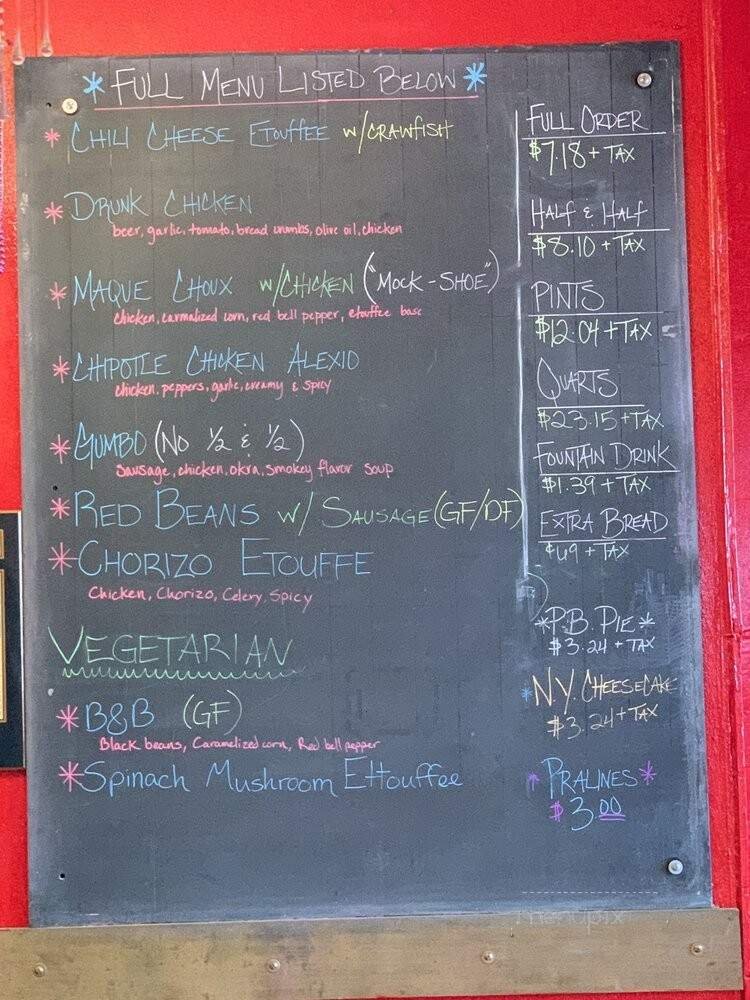 * FULL MENU LISTED BELOW *
* CHILI CHEESE ETOUFFEE W/CRAWFISH
* DRUNK CHICKEN
beer, garlic, tomato, bread crumbs, olive oil, chicken
* MAQUE CHOUX W/CHICKEN ("MOCK-SHOE")
chicken, carmalized corn, red bell pepper, etouffee base
* CHIPOTLE CHICKEN ALEXIO
chicken, peppers, garlic, creamy & spicy
* GUMBO (NO 1/2 & 1/2)
Sausage, chicken, okra, smokey flavor soup
* RED BEANS W/ SAUSAGE (GF/DF)
* CHORIZO ETOUFFE
Chicken, Chorizo, Celery, Spicy
VEGETARIAN
* B&B (GF)
Black beans, Caramelized corn, Red bell pepper
* Spinach Mushroom Ettouffee
FULL ORDER
$7.18 + TAX
HALF & HALF
$8.10 + TAX
PINTS
$12.04 + TAX
QUARTS
$23.15 + TAX
FOUNTAIN DRINK
$1.39 + TAX
EXTRA BREAD
¢49 + TAX
*P.B. PIE*
$3.24 + TAX
*N.Y. CHEESECAKE
$3.24 + TAX
* PRALINES *
$3.00